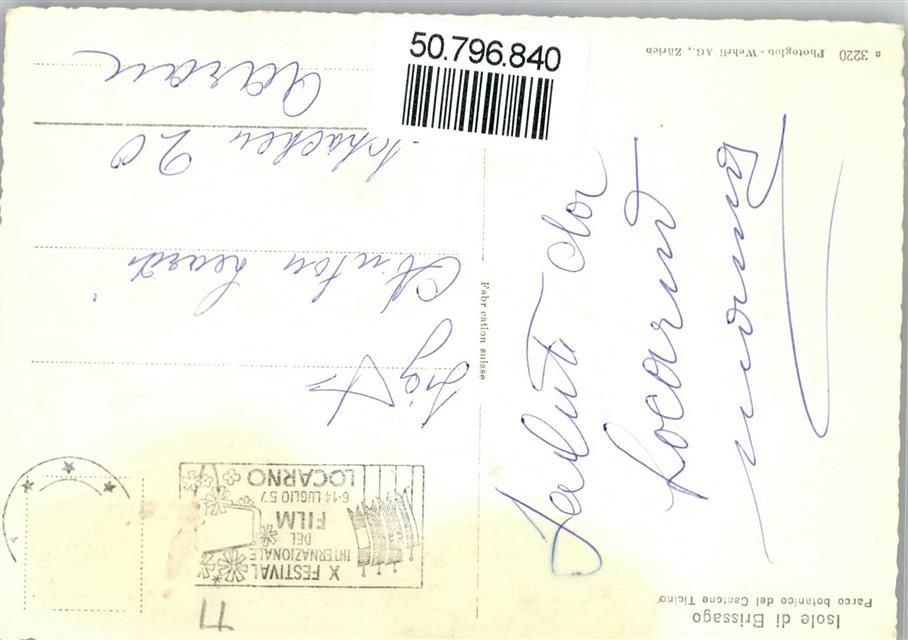 50.796.840
Isole di Brissago
Parco botanico del Cantone Ticino
a 3220 Photoglob-Wehrli AG., Zürich
Fabrication suisse
Saluti da
Locarno
X FESTIVAL
INTERNAZIONALE
DEL
FILM
6-14 LUGLIO 57
LOCARNO
Anton
20
Aarau
TT